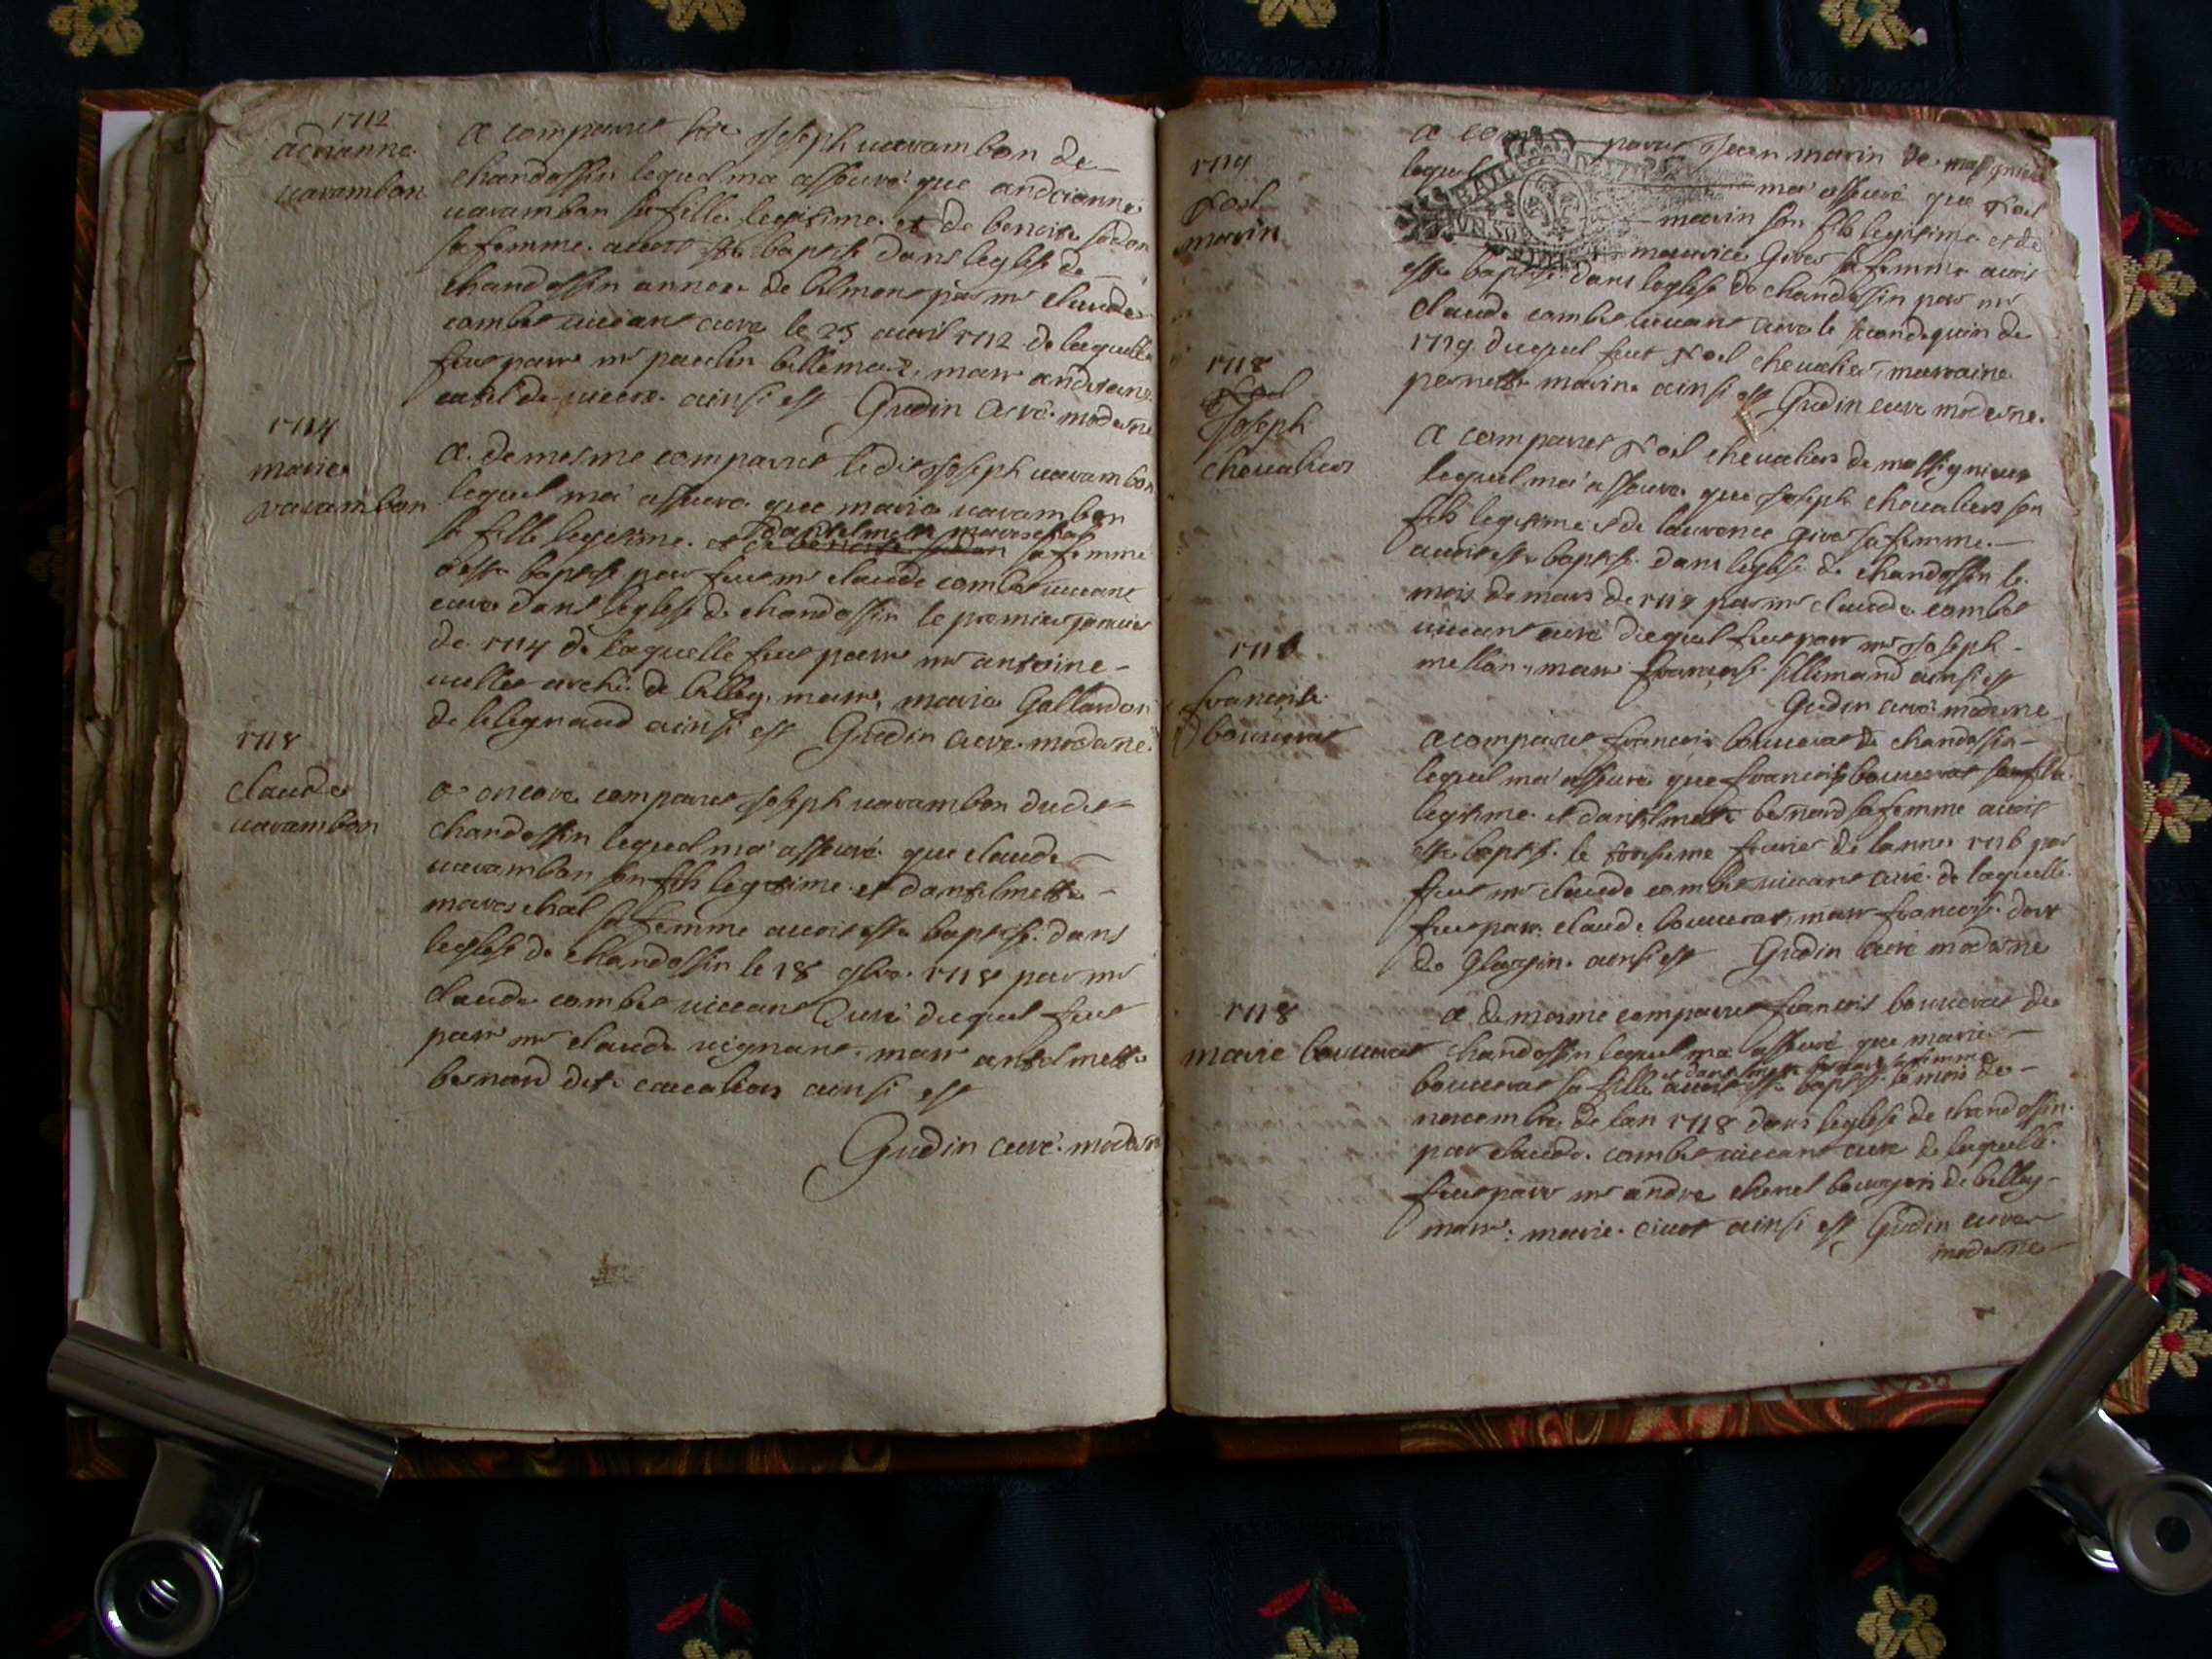 1712
adrianne
varambon
a comparut Joseph varambon de
chandossin lequel ma asseuré que andrianne
varambon sa fille legitime et de benoite
sa femme avoit esté baptisé dans leglise de
chandossin annexe de belmont par mr claude
combet vivant curé le 25 avril 1712 de laquelle
fut parr mr paulin billemaz, marr andrianne
ainsi est Gudin curé moderne
1714
marie
varambon
a de mesme comparut ledit Joseph varambon
lequel ma asseuré que marie varambon
sa fille legitime et dantelmette mareschal
de benoite sa femme
a esté baptisé par feu mr claude combet vivant
curé dans leglise de chandossin le premier janvier
de 1714 de laquelle fut parr mr antoine
vullet de belley, marr, marie Gallardon
de ainsi est Gudin curé moderne
1718
claude
varambon
a encore comparut Joseph varambon dudit
chandossin lequel ma asseuré que claude
varambon son fils legitime et dantelmette
mareschal sa femme avoit esté baptisé dans
leglise de chandossin le 18 9bre 1718 par mr
claude combet vivant curé duquel fut
parr mr claude vignant, marr antelmette
bernard dite cavalier ainsi est
Gudin curé moderne
1719
Noel
marin
a comparut Jean marin de massignieu
lequel ma asseuré que Noel
marin son fils legitime et de
maurice Givet sa femme avoit
esté baptisé dans leglise de chandossin par mr
claude combet vivant curé le second juin de
1719 duquel fut Noel chevalier, marraine
pernette marin ainsi est Gudin curé moderne
1718
Noel
Joseph
chevaliers
a comparut Noel chevaliers de massignieu
lequel ma asseuré que Joseph chevaliers son
fils legitime et de laurence Givet sa femme
avoit esté baptisé dans leglise de chandossin le
mois de mars de 1718 par mr claude combet
vivant curé duquel fut parr mr Joseph
mellan, marr francoise Sillemand ainsi est
Gudin curé moderne
1716
francoise
bouverat
a comparut francois bouverat de chandossin
lequel ma asseuré que francoise bouverat sa fille
legitime et dantelmette bernard sa femme avoit
esté baptisé le troisieme fevrier de lannee 1716 par
feu mr claude combet vivant curé de laquelle
fut parr claude bouverat, marr francoise
de ainsi est Gudin curé moderne
1718
marie bouverat
a de mesme comparut francois bouverat de
chandossin lequel ma asseuré que marie
et dantelmette bernard sa femme
bouverat sa fille avoit esté baptisé le mois de
novembre de lan 1718 dans leglise de chandossin
par claude combet vivant curé de laquelle
fut parr mr andre chenel bourgeois de belley
marr: marie ainsi est Gudin curé
moderne